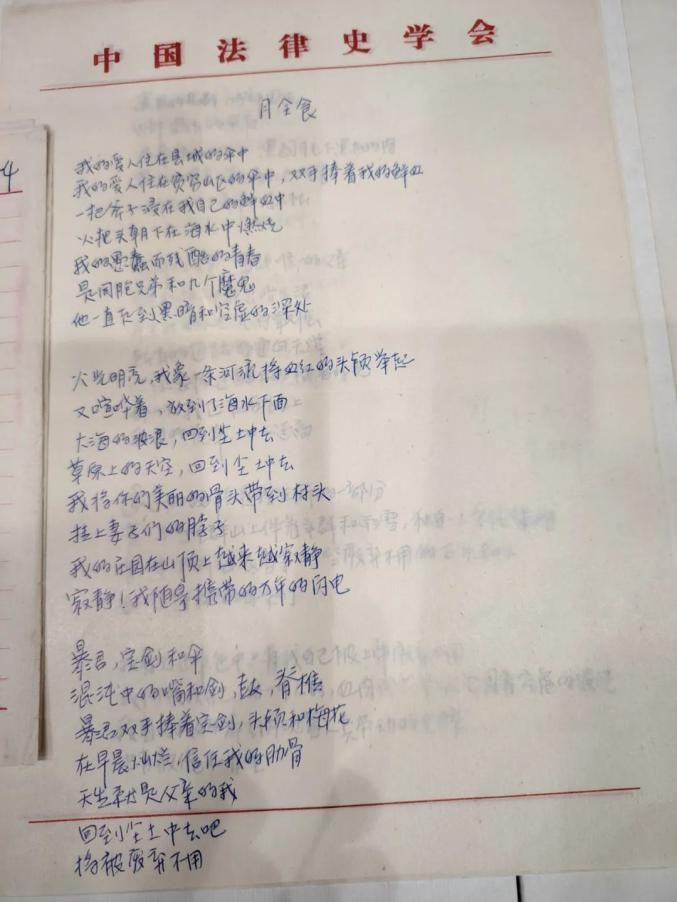 中国法律史学会
4
月全食
我的爱人住在县城的伞中
我的爱人住在贫穷山区的伞中,双手捧着我的鲜血
一把斧子浸在我自己的鲜血中
火把头朝下在海水中燃烧
我的愚蠢而残酷的青春
是同胞兄弟和几个魔鬼
他一直走到黑暗和空虚的深处
火光明亮,我象一条河流将血红的头颅举起
又喧哗着,放到了海水下面
大海的波浪,回到尘土中去
草原上的天空,回到尘土中去
我将你们美丽的骨头带到村头
挂上妻子们的脖子
我的庄园在山顶上越来越寂静
寂静!我随身携带的万年的闪电
暴君,宝剑和伞
混沌中的嘴和剑,鼓,脊椎
暴君双手捧着宝剑,头颅和梅花
在早晨灿烂,信任我的肋骨
天生就是父亲的我
回到尘土中去吧
将被废弃不用